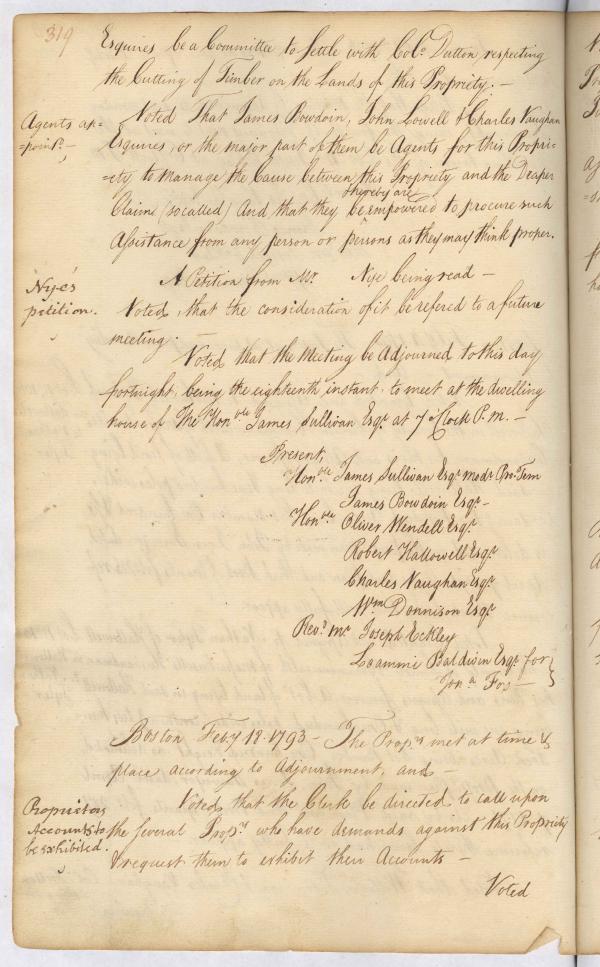 319
Esquires be a Committee to Settle with Colo. Dutton respecting
the Cutting of Timber on the Lands of this Propriety. —
Agents ap=
=point.d —
Voted That James Bowdoin, John Lowell & Charles Vaughan
Esquires, or the major part of them be Agents for this Propri=
=ety to manage the Cause between this Propriety and the Draper
Claim (so called) And that they hereby are be empowered to procure such
Assistance from any person or persons as they may think proper.
Nye's
petition.
A Petition from Mr. Nye being read —
Voted, that the consideration of it be refered to a future
meeting. —
Voted that the Meeting be Adjourned to this day
fortnight, being the eighteenth instant, to meet at the dwelling
house of The Honble James Sullivan Esqr at 7 Clock P.M. —
Present,
Honble James Sullivan Esqr modr Pro. Tem
James Bowdoin Esqr —
Honble Oliver Wendell Esqr
Robert Hallowell Esqr
Charles Vaughan Esqr
Wm Donnison Esqr
Revd mr Joseph Eckley
Loammi Baldwin Esqr for }
Jona Fox —
Boston Feby 18. 1793 — The Proprs met at time &
place according to Adjournment, and —
Proprietors
Accounts to
be exhibited.
Voted that the Clerk be directed to call upon
the several Proprs who have demands against this Propriety
& request them to exhibit their Accounts —
Voted